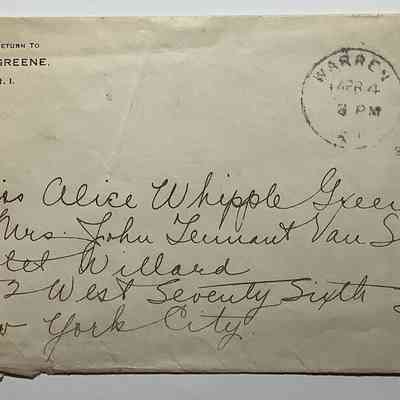 RETURN TO
GREENE.
R. I.
WARREN
APR 4
3 PM
R I
iss Alice Whipple Green
Mrs. John Tennant Van S
tel Willard
2 West Seventy Sixth S
w York City.